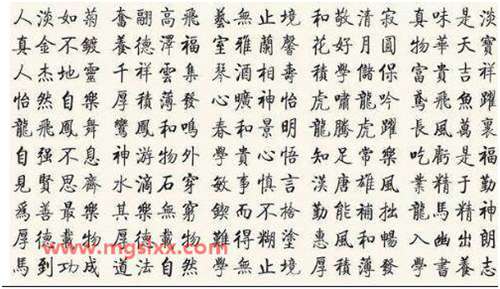 人淡如菊 奮翮高飛 藝無止境 和敬清寂 真味是淡
真金不鍍 養德澤福 室雅蘭馨 花好月圓 物華天寶
人杰地靈 千祥雲集 琴酒相壽 學儲保 富貴吉祥
怡然自樂 厚積薄發 心曠神怡 虎嘯龍吟 鳶飛魚躍
龍飛鳳舞 鸞鳳和鳴 春和景明 龍騰虎躍 長風萬裏
自强不息 神游物外 學貴心悟 知足常樂 吃虧是福
見賢思齊 水滴石穿 敏事慎言 漢唐雄風 業精于勤
爲善最樂 其樂無窮 鍥而不捨 勤能補拙 龍馬精神
厚德載物 厚德載物 難得糊塗 惠風和暢 入幽出朗
www.mgslxx.com
馬到功成 道法自然 學無止境 厚積薄發 學書養志